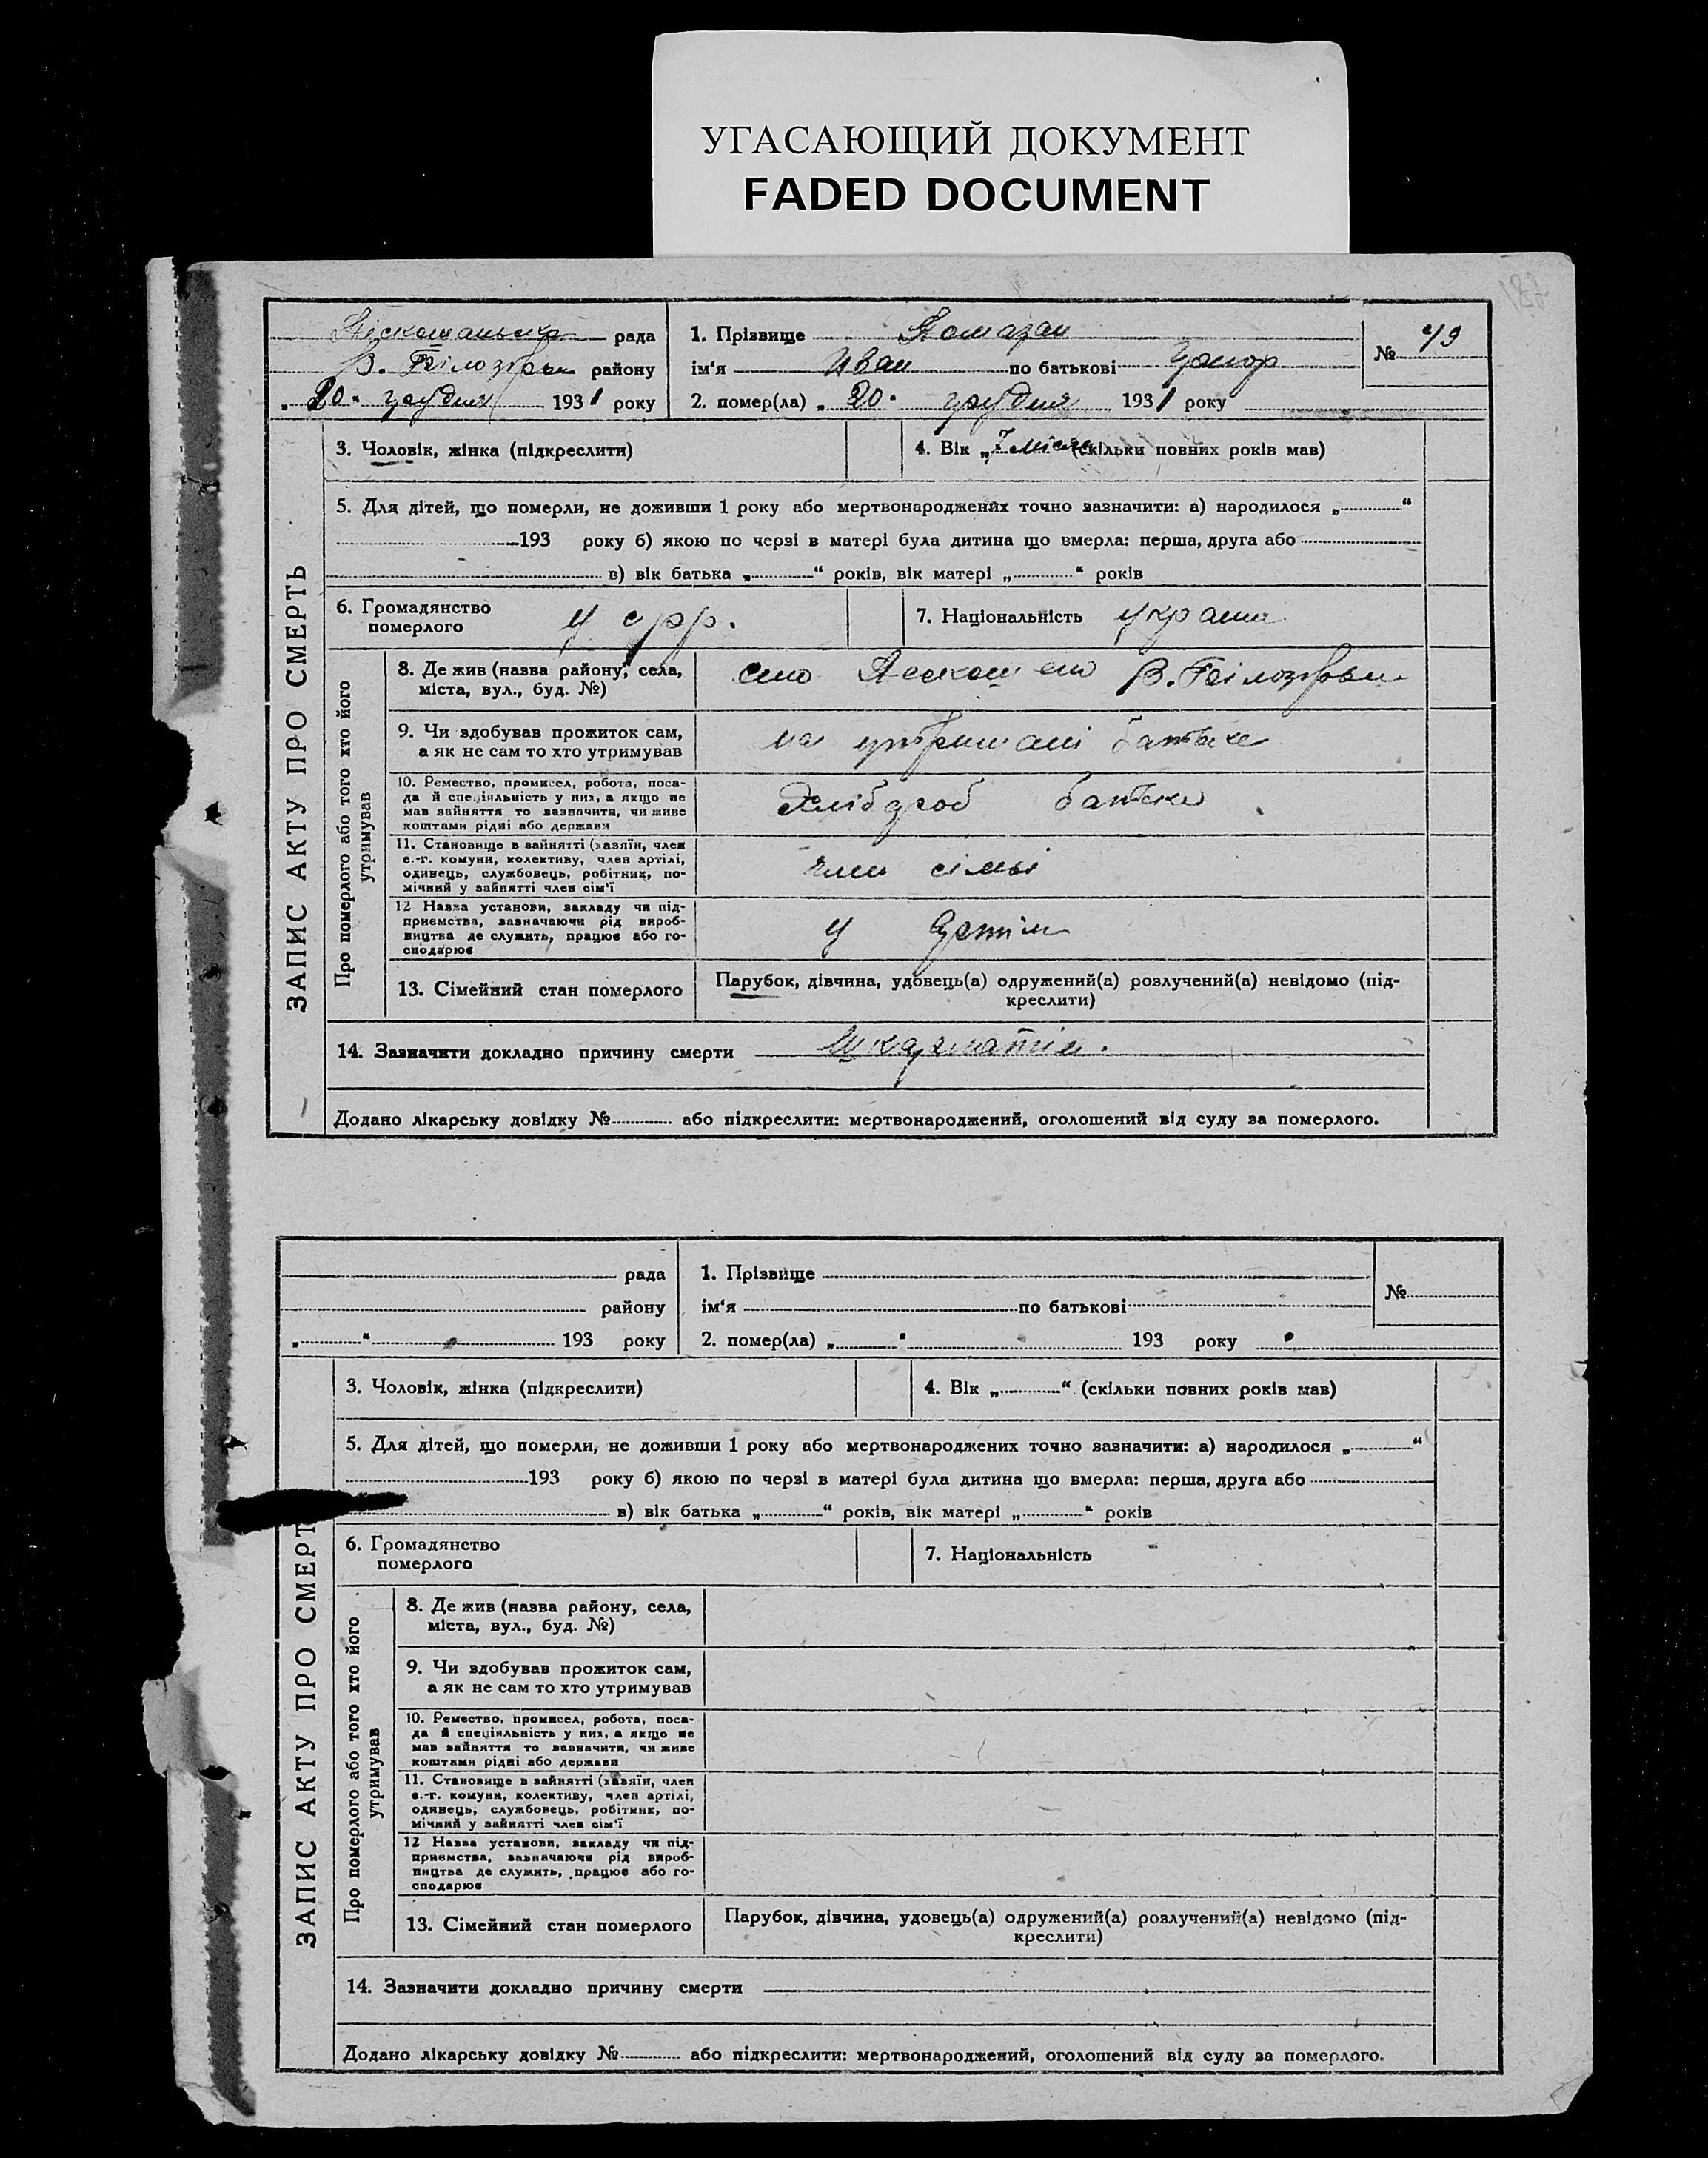 УГАСАЮЩИЙ ДОКУМЕНТ
FADED DOCUMENT
рада
В. Білозірськ району
„ 20 " грудня 1931 року
1. Прізвище Помазан
ім'я Иван по батькові
2. помер(ла) „ 20 " грудня 1931 року
№ 49
ЗАПИС АКТУ ПРО СМЕРТЬ
3. Чоловік, жінка (підкреслити)
4. Вік „ 7 місяц (скільки повних років мав)
5. Для дітей, що померли, не доживши 1 року або мертвонароджених точно зазначити: а) народилося „ “
193 року б) якою по черзі в матері була дитина що вмерла: перша, друга або
в) вік батька „ “ років, вік матері „ “ років
6. Громадянство
померлого
У СРР.
7. Національність украин
Про померлого або того хто його
утримував
8. Де жив (назва району, села,
міста, вул., буд. №)
село В. Білозірськ
9. Чи здобував прожиток сам,
а як не сам то хто утримував
на утримані батька
10. Ремество, промисел, робота, поса-
да й спеціяльність у них, а якщо не
мав зайняття то зазначити, чи живе
коштами рідні або держави
Хлібороб батько
11. Становище в зайнятті (хазяїн, член
с.-г. комуни, колективу, член артілі,
одинець, службовець, робітник, по-
мічний у зайнятті член сім'ї
член сімьі
12 Назва установи, закладу чи під-
приємства, зазначаючи рід вироб-
ництва де служить, працює або го-
сподарює
У
13. Сімейний стан померлого
Парубок, дівчина, удовець(а) одружений(а) розлучений(а) невідомо (під-
креслити)
14. Зазначити докладно причину смерти
Додано лікарську довідку № або підкреслити: мертвонароджений, оголошений від суду за померлого.
рада
району
„ “ 193 року
1. Прізвище
ім'я по батькові
2. помер(ла) „ “ 193 року
№
ЗАПИС АКТУ ПРО СМЕРТ
3. Чоловік, жінка (підкреслити)
4. Вік „ “ (скільки повних років мав)
5. Для дітей, що померли, не доживши 1 року або мертвонароджених точно зазначити: а) народилося „ “
193 року б) якою по черзі в матері була дитина що вмерла: перша, друга або
в) вік батька „ “ років, вік матері „ “ років
6. Громадянство
померлого
7. Національність
Про померлого або того хто його
утримував
8. Де жив (назва району, села,
міста, вул., буд. №)
9. Чи здобував прожиток сам,
а як не сам то хто утримував
10. Ремество, промисел, робота, поса-
да й спеціяльність у них, а якщо не
мав зайняття то зазначити, чи живе
коштами рідні або держави
11. Становище в зайнятті (хазяїн, член
с.-г. комуни, колективу, член артілі,
одинець, службовець, робітник, по-
мічний у зайнятті член сім'ї
12 Назва установи, закладу чи під-
приємства, зазначаючи рід вироб-
ництва де служить, працює або го-
сподарює
13. Сімейний стан померлого
Парубок, дівчина, удовець(а) одружений(а) розлучений(а) невідомо (під-
креслити)
14. Зазначити докладно причину смерти
Додано лікарську довідку № або підкреслити: мертвонароджений, оголошений від суду за померлого.